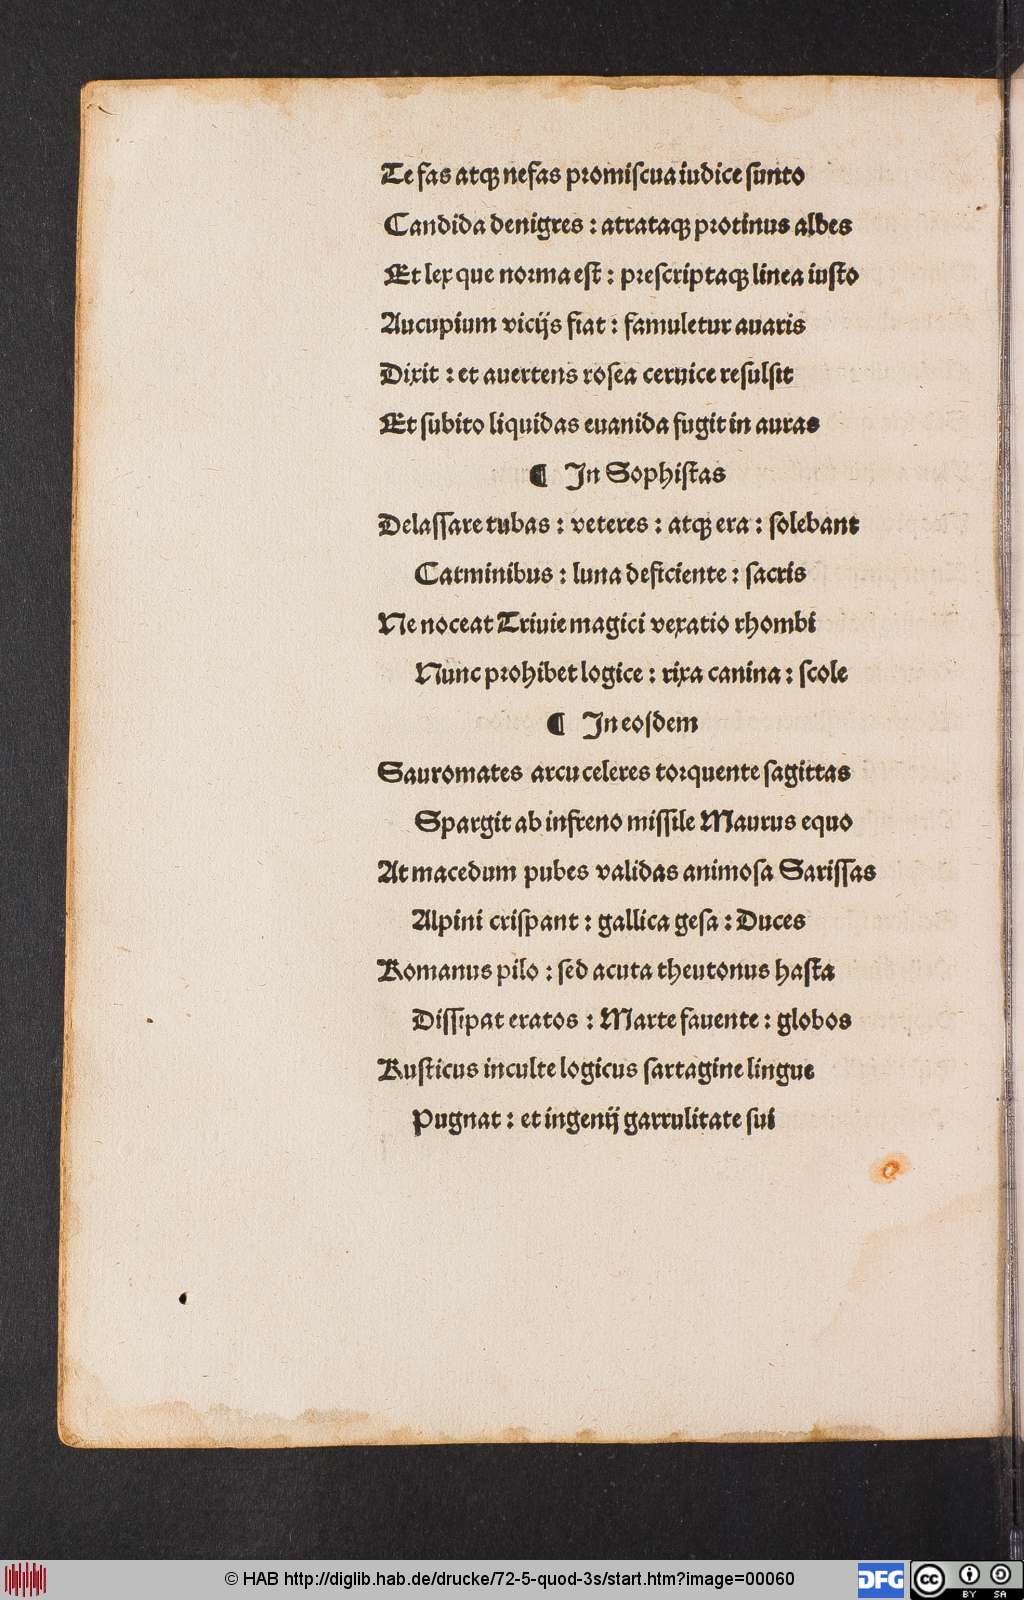 Te fas atqꝫ nefas promiſcua iudice ſunto
Candida denigres : atrataqꝫ protinus albes
Et lex que norma eſt : preſcriptaqꝫ linea iuſto
Aucupium vicijs fiat : famuletur auaris
Dixit : et auertens roſea ceruice reſulſit
Et ſubito liquidas euanida fugit in auras
¶ In Sophiſtas
Delaſſare tubas : veteres : atqꝫ era : ſolebant
Carminibus : luna deficiente : ſacris
Ne noceat Triuie magici vexatio rhombi
Nunc prohibet logice : rixa canina : ſcole
¶ In eoſdem
Sauromates arcu celeres torquente ſagittas
Spargit ab infreno miſſile Maurus equo
At macedum pubes validas animoſa Sariſſas
Alpini criſpant : gallica geſa : Duces
Romanus pilo : ſed acuta theutonus haſta
Diſſipat eratos : Marte fauente : globos
Ruſticus inculte logicus ſartagine lingue
Pugnat : et ingenij garrulitate ſui
© HAB http://diglib.hab.de/drucke/72-5-quod-3s/start.htm?image=00060
DFG
cc BY SA